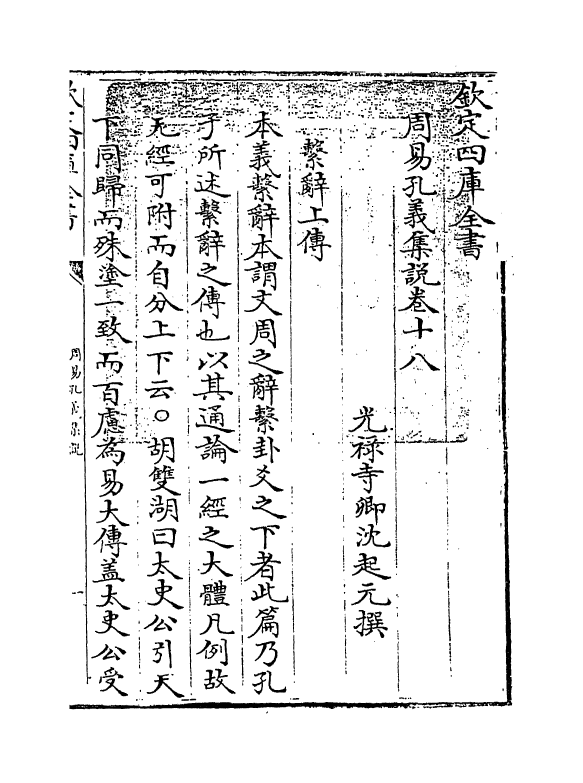 欽定四庫全書
周易孔義集說卷十八
光祿寺卿沈起元撰
繫辭上傳
本義繫辭本謂文周之辭繫卦爻之下者此篇乃孔
子所述繫辭之傳也以其通論一經之大體凡例故
无經可附而自分上下云○胡雙湖曰太史公引天
下同歸而殊塗一致而百慮為易大傳蓋太史公受
欽定四庫全書
周易孔義集說
一